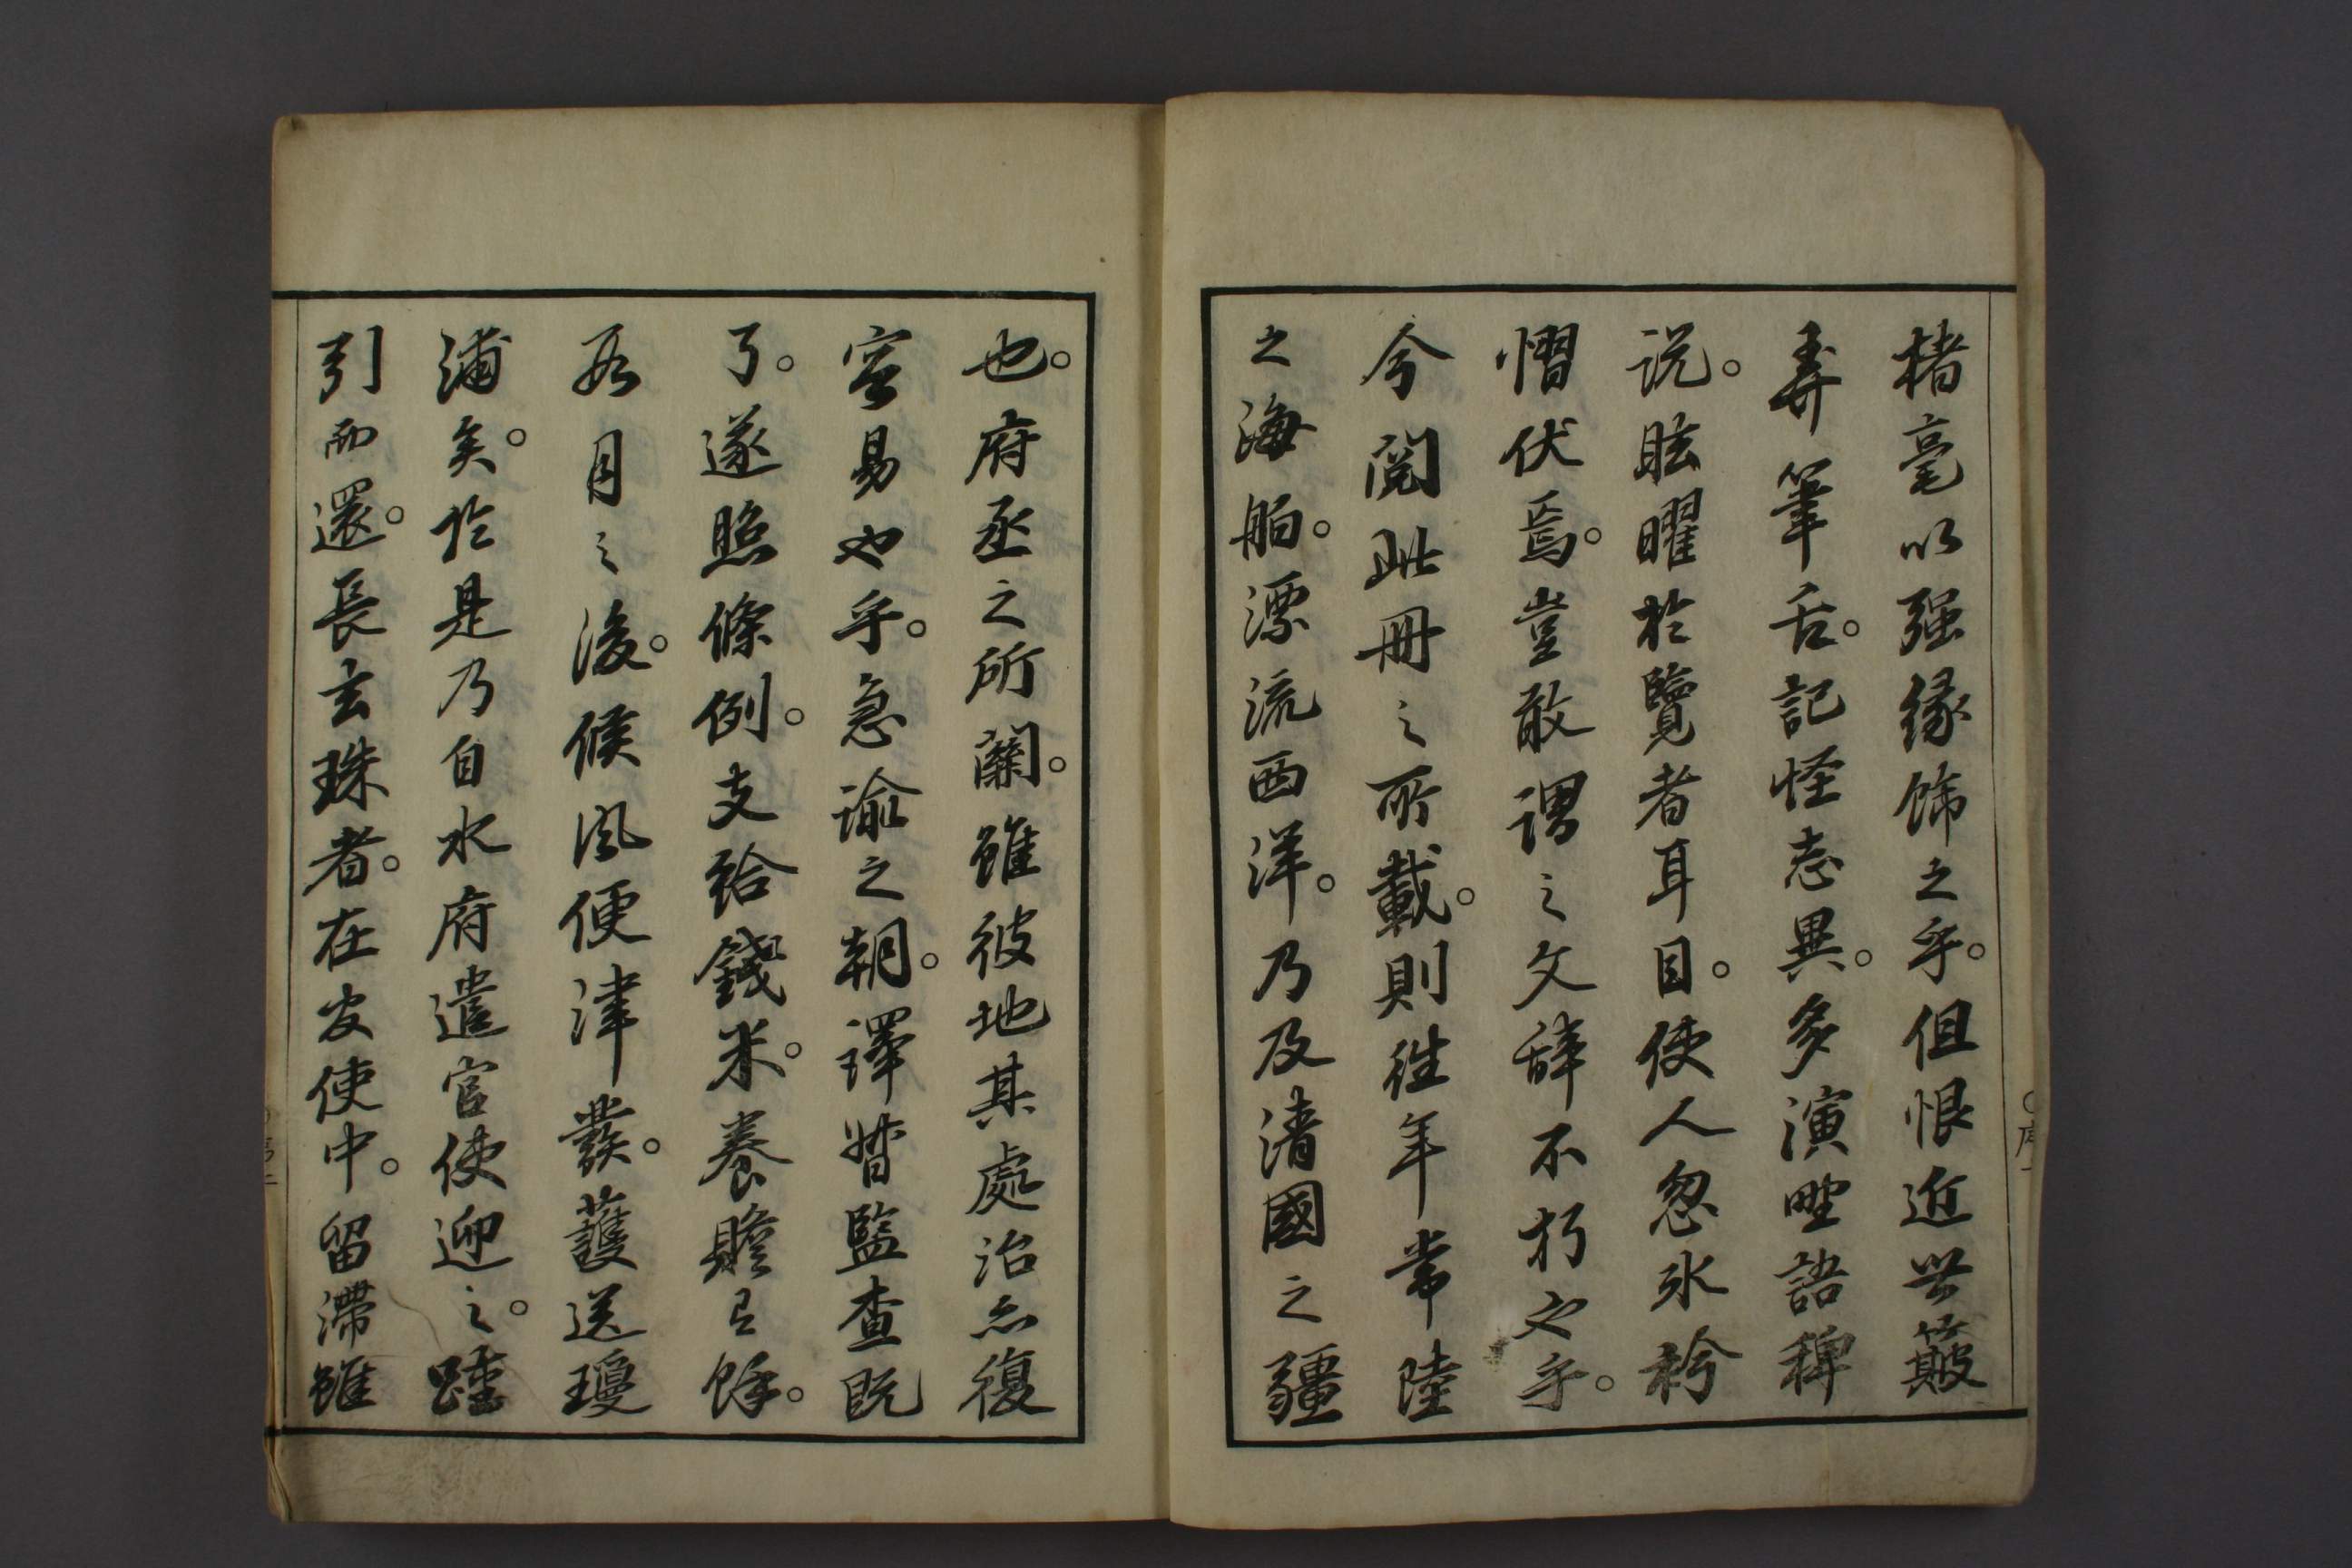 楮毫以强緣飾之乎。但恨近世簸
弄筆舌。記怪志異。多演野語稗
說。眩曜於覽者耳目。使人忽氷衿
慴伏焉。豈敢謂之文辞不朽也乎。
今閱此冊之所載。則往年常陸
之海舶。漂流西洋。乃及清國之疆
也。府丞之所關。雖彼地其處治亦復
容易也乎。急諭之朝。譯督監查既
了。遂照條例。支給錢米。養贍有餘。
數月之後。候風便津發。護送瓊
浦矣。於是乃自水府遣官使迎之。
引而還。長玄珠者。在友使中。留滯雖